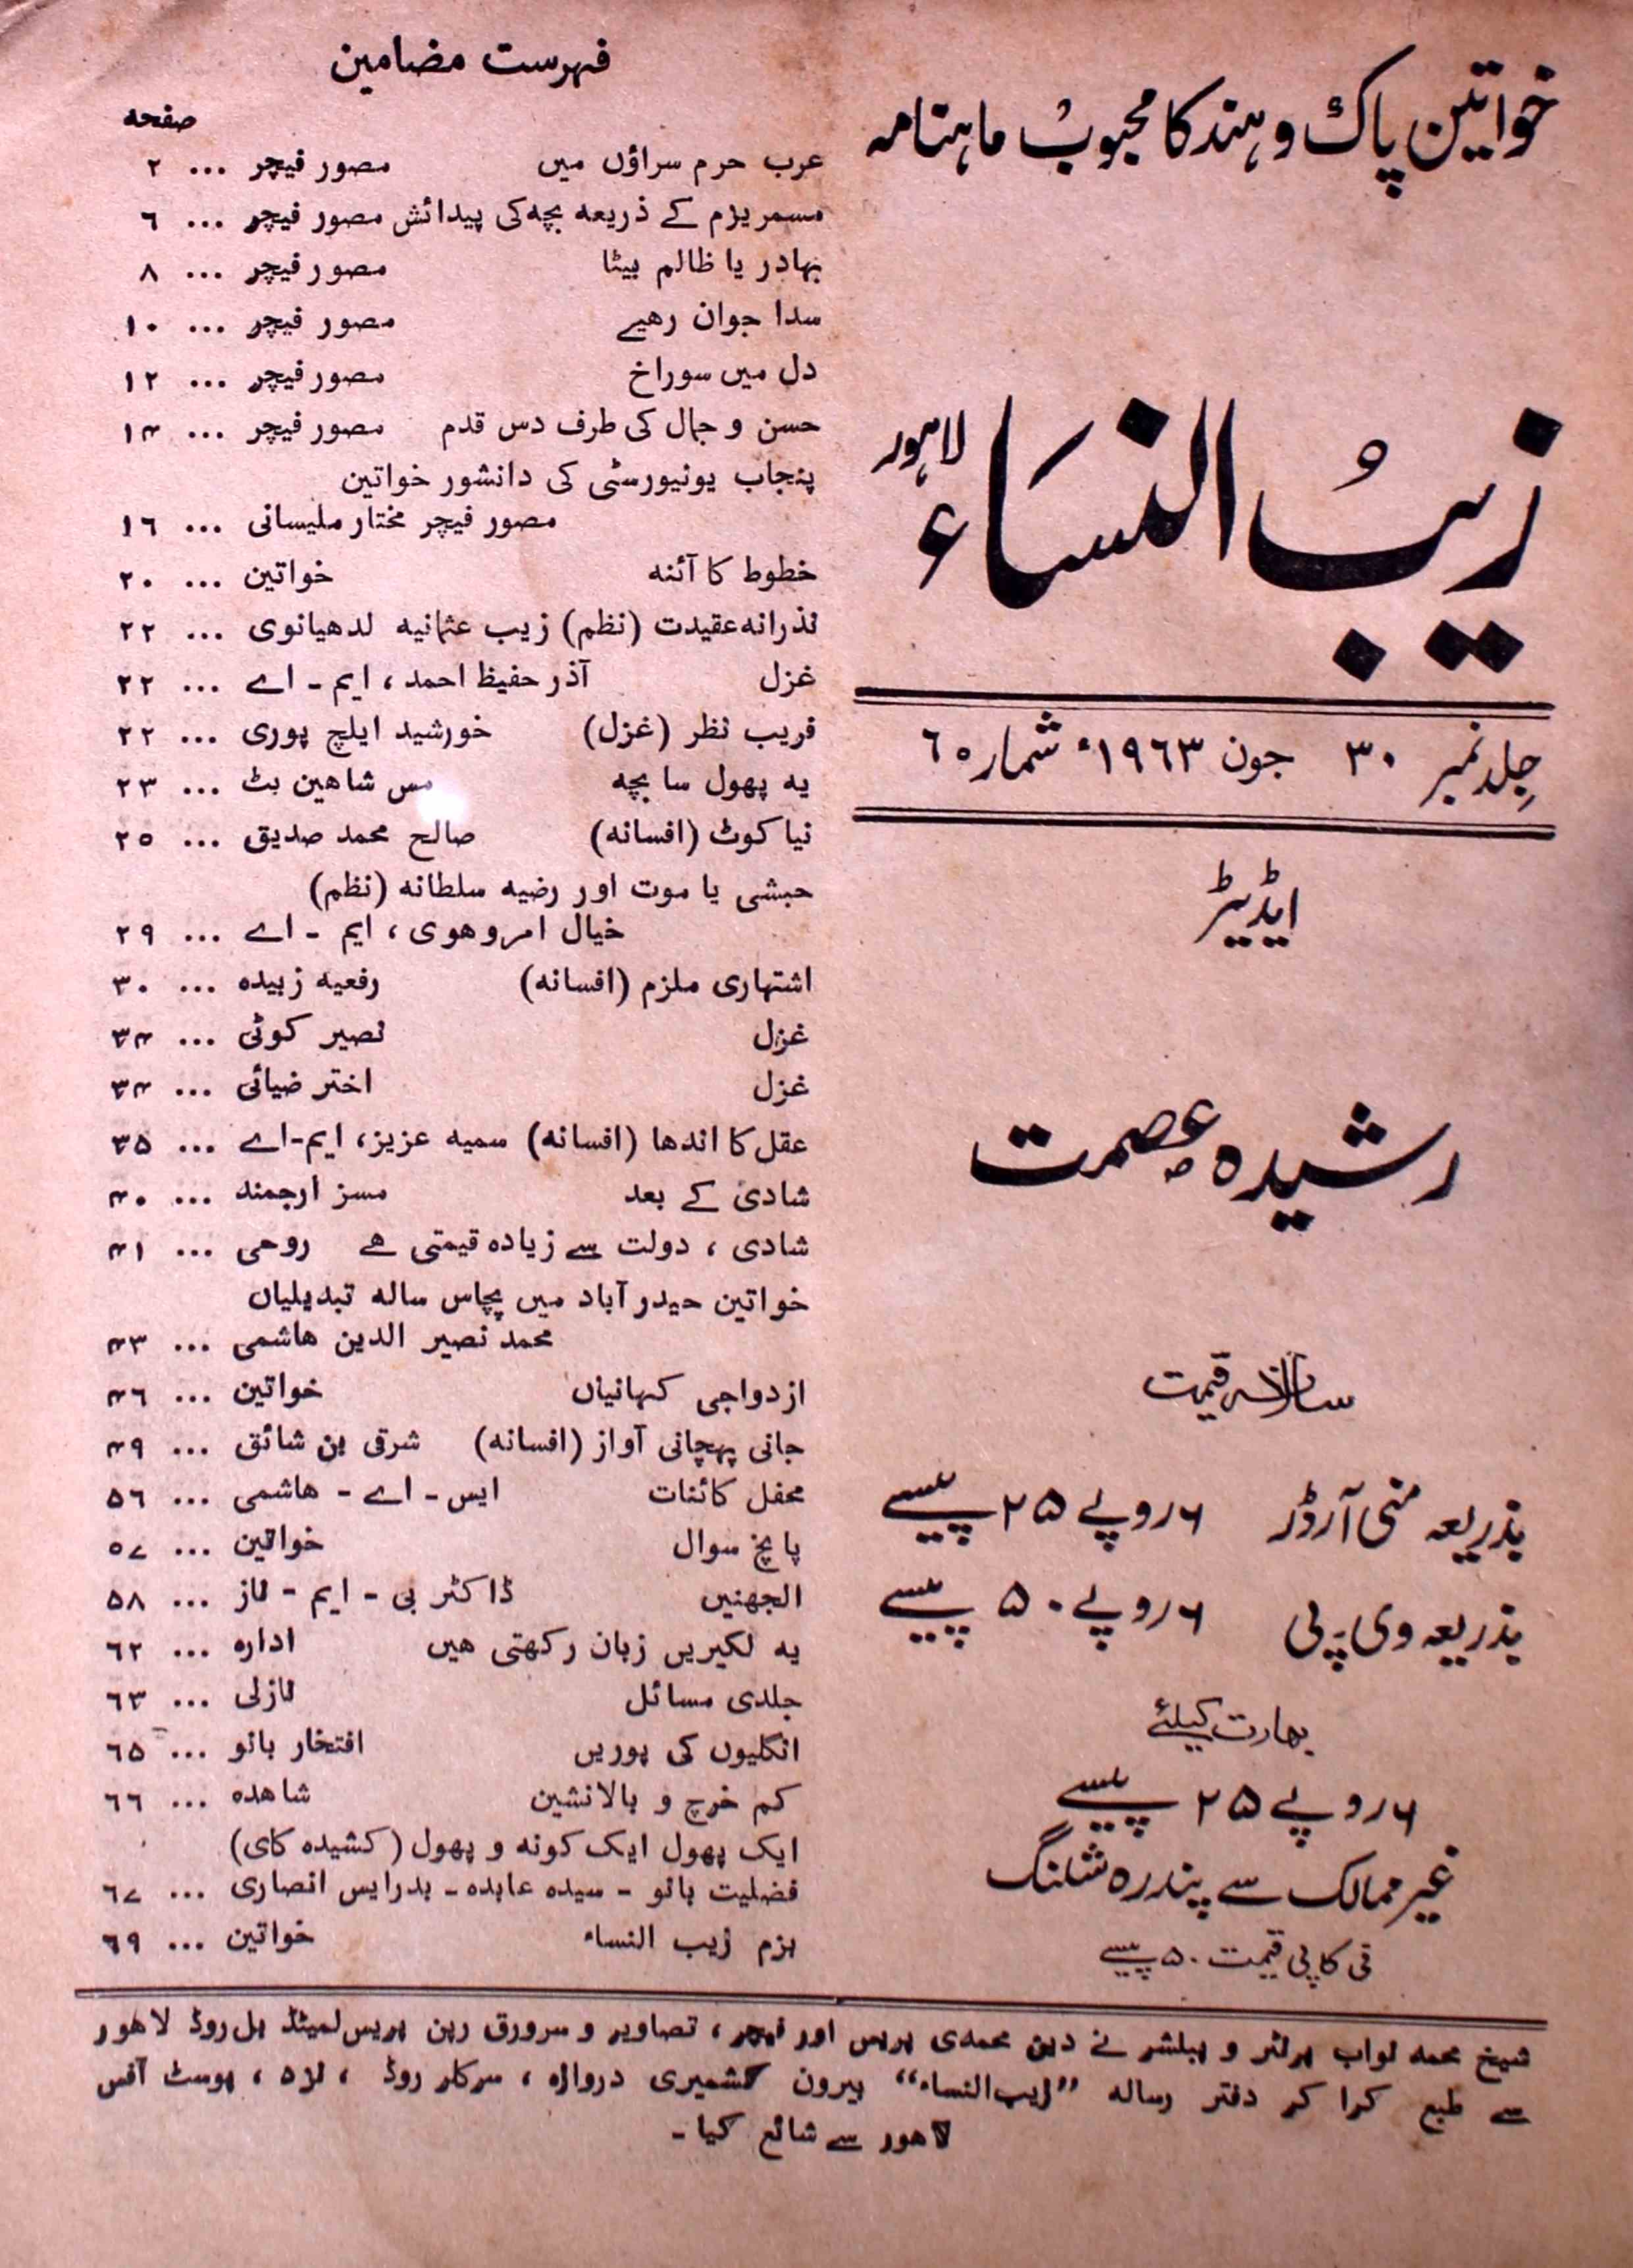 خواتین پاک و ہند کا محبوب ماہنامہ
زیب النساء لاہور
جلد نمبر ۳۰ جون ۱۹۶۳ء شمارہ ۶
ایڈیٹر
رشیدہ عصمت
سالانہ قیمت
بذریعہ منی آرڈر ۶ روپے ۲۵ پیسے
بذریعہ وی۔پی ۶ روپے ۵۰ پیسے
بھارت کیلئے
۶ روپے ۲۵ پیسے
غیر ممالک سے پندرہ شلنگ
فی کاپی قیمت ۵۰ پیسے
فہرست مضامین
صفحہ
عرب حرم سراؤں میں مصور فیچر ... ۲
مسمریزم کے ذریعہ بچہ کی پیدائش مصور فیچر ... ۶
بہادر یا ظالم بیٹا مصور فیچر ... ۸
سدا جوان رہیے مصور فیچر ... ۱۰
دل میں سوراخ مصور فیچر ... ۱۲
حسن و جمال کی طرف دس قدم مصور فیچر ... ۱۴
پنجاب یونیورسٹی کی دانشور خواتین
مصور فیچر مختار ملیسانی ... ۱۶
خطوط کا آئنہ خواتین ... ۲۰
نذرانہ عقیدت (نظم) زیب عثمانیہ لدھیانوی ... ۲۲
غزل آذر حفیظ احمد، ایم - اے ... ۲۲
قریب نظر (غزل) خورشید ایلچ پوری ... ۲۲
یہ پھول سا بچہ مس شاہین بٹ ... ۲۳
نیا کوٹ (افسانہ) صالح محمد صدیق ... ۲۵
حبشی یا موت اور رضیہ سلطانہ (نظم)
خیال امروہوی، ایم - اے ... ۲۹
اشتہاری ملزم (افسانہ) رفعیہ زبیدہ ... ۳۰
غزل نصیر کوٹی ... ۳۴
غزل اختر ضیائی ... ۳۴
عقل کا اندھا (افسانہ) سمیہ عزیز، ایم-اے ... ۳۵
شادی کے بعد مسز ارجمند ... ۴۰
شادی، دولت سے زیادہ قیمتی ہے روحی ... ۴۱
خواتین حیدر آباد میں پچاس سالہ تبدیلیاں
محمد نصیر الدین ہاشمی ... ۴۳
ازدواجی کہانیاں خواتین ... ۴۶
جانی پہچانی آواز (افسانہ) شرقی بن شائق ... ۴۹
محفل کائنات ایس - اے - ہاشمی ... ۵۶
پانچ سوال خواتین ... ۵۷
الجھنیں ڈاکٹر بی - ایم - ناز ... ۵۸
یہ لکیریں زبان رکھتی ہیں ادارہ ... ۶۲
جلدی مسائل نازلی ... ۶۳
انگلیوں کی پوریں افتخار بانو ... ۶۵
کم خرچ و بالا نشین شاہدہ ... ۶۶
ایک پھول ایک کونہ و پھول (کشیدہ کای)
فضلیت بانو - سیدہ عابدہ - بدرایس انصاری ... ۶۷
بزم زیب النساء خواتین ... ۶۹
شیخ محمد نواب پرنٹر و پبلشر نے دین محمدی پریس اور فیچر، تصاویر و سرورق رین پریس لمیٹڈ بل روڈ لاہور
سے طبع کرا کر دفتر رسالہ ”زیب النساء“ بیرون کشمیری دروازہ، سرکلر روڈ، نزد، پوسٹ آفس
لاہور سے شائع کیا۔